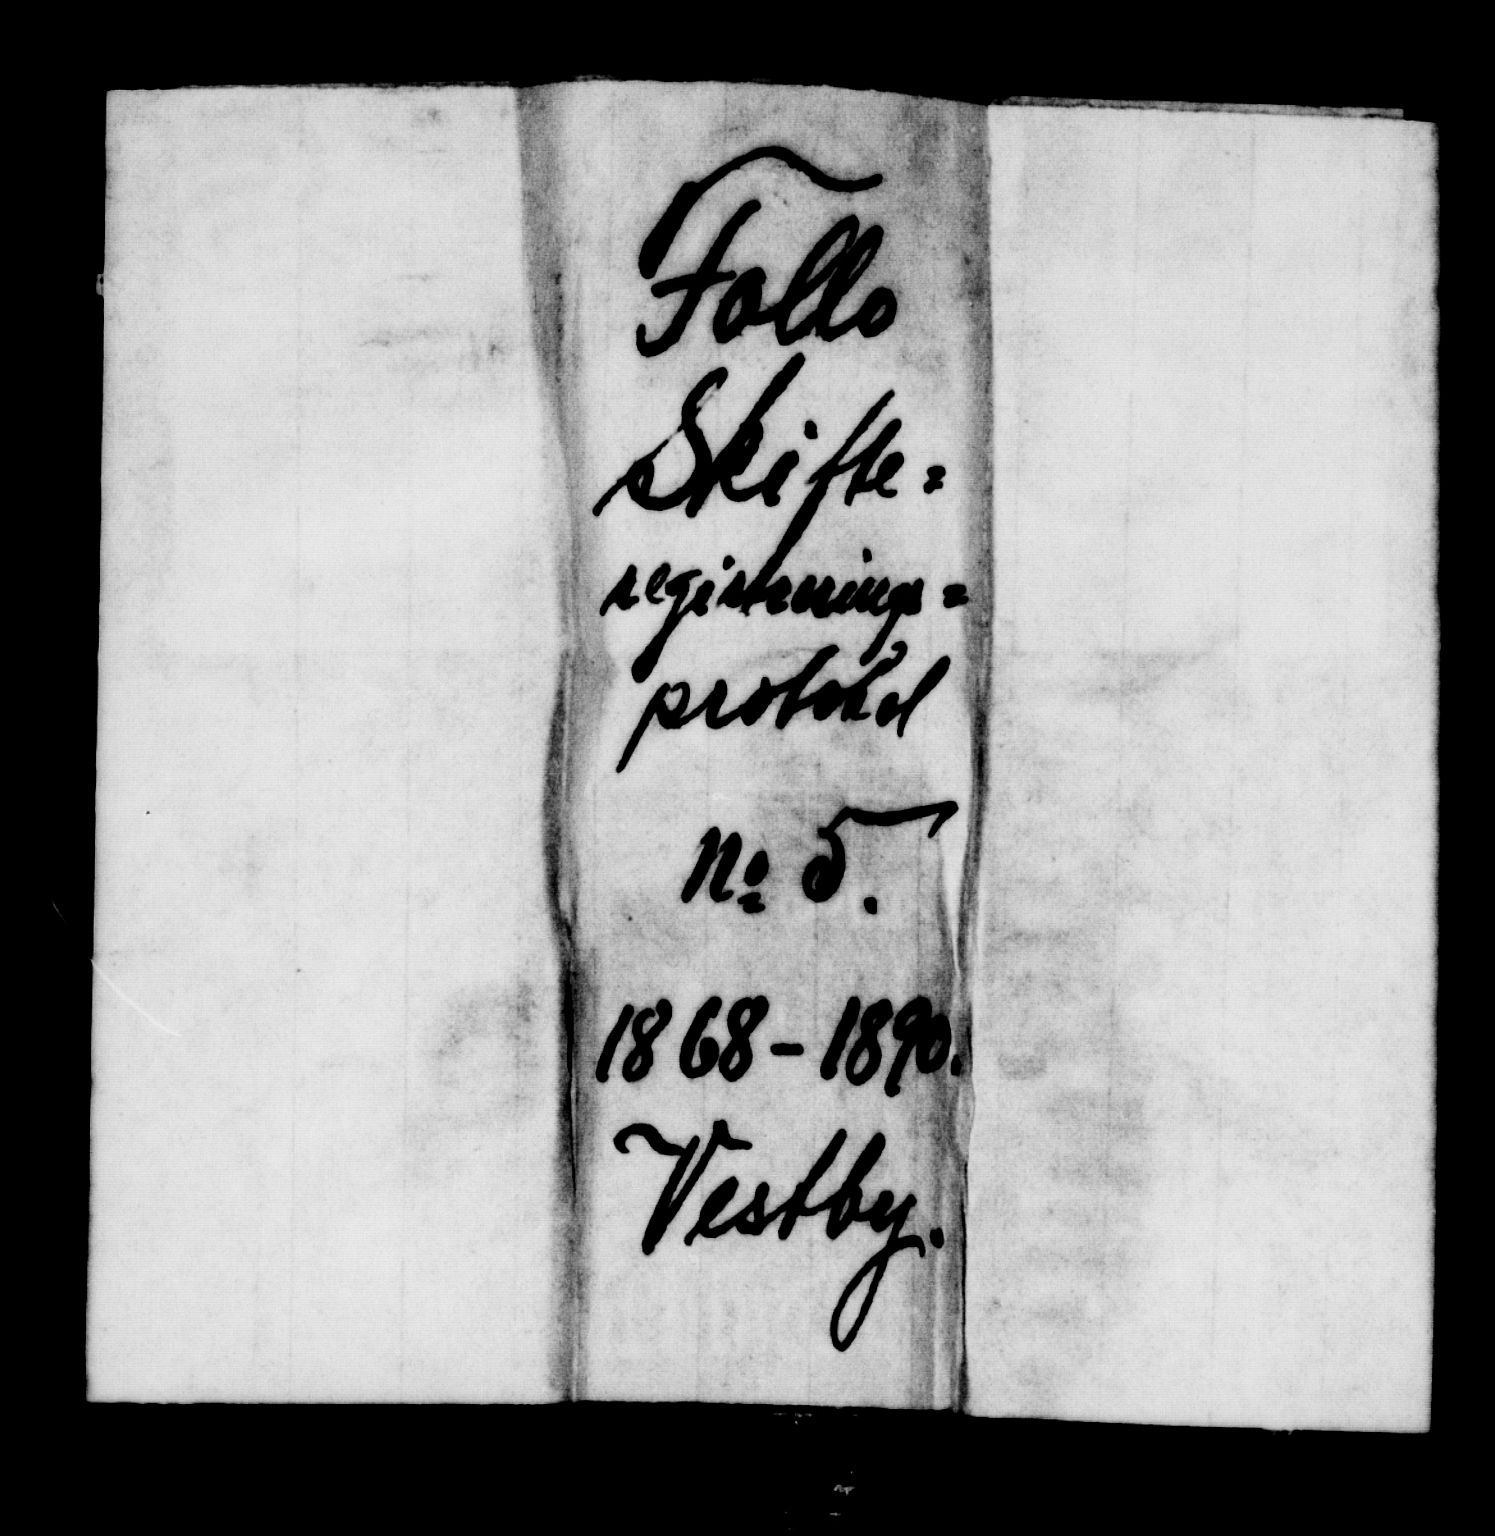 Follo
Skifte=
registrerings=
protokol
No 5.
1868-1890.
Vestby.